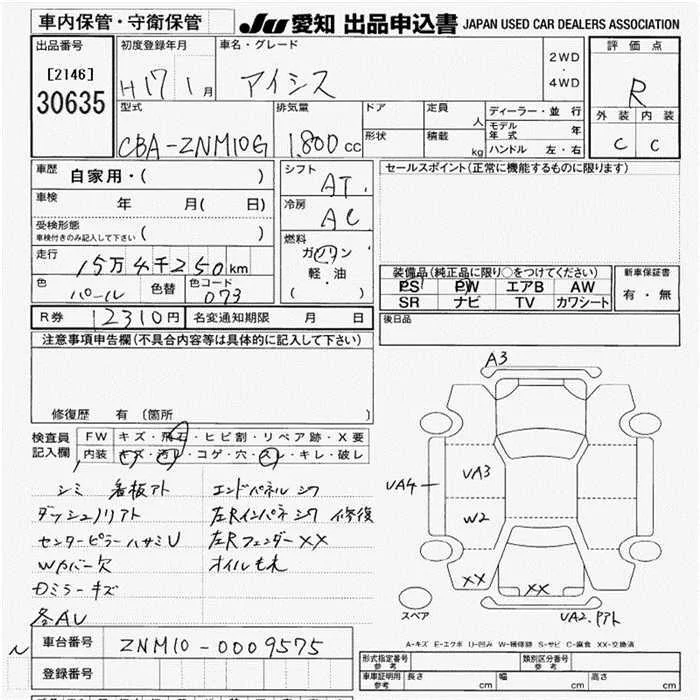 車内保管・守衛保管
JU 愛知 出品申込書 JAPAN USED CAR DEALERS ASSOCIATION
出品番号
[2146]
30635
初度登録年月
H17 1月
車名・グレード
アイシス
2WD
・
4WD
評価点
R
外装 内装
C C
型式
CBA-ZNM10G
排気量
1.800cc
ドア
形状
定員
人
積載
kg
ディーラー・並行
モデル年式 年
ハンドル 左・右
車歴
自家用・( )
車検
年 月( 日)
受検形態
車検付きのみ記入して下さい ( )
走行
15万4千250km
色
パール
色替
色コード
073
シフト
AT
冷房
AC
燃料
ガソリン
軽・油
( )
セールスポイント(正常に機能するものに限ります)
装備品(純正品に限り○をつけてください)
PS PW エアB AW
SR ナビ TV カワシート
新車保証書
有・無
R券 12310円 名変通知期限 月 日
後日品
注意事項申告欄(不具合内容等は具体的に記入して下さい)
修復歴 有 〔箇所
検査員
記入欄
FW キズ・飛石・ヒビ割・リペア跡・X要
内装 キズ・汚レ・コゲ・穴・スレ・キレ・破レ
シミ 看板アト
ダッシュノリアト
センターピラーハサミU
Wカバー欠
Dミラーキズ
各AU
エンドパネルシワ
左Rインパネシワ 修復
左RフェンダーXX
オイルもれ
A3
UA4
UA3
W2
XX
XX
UA2.Pアト
スペア
A-キズ E-エクボ U-凹み W-補修跡 S-サビ C-腐食 XX-交換済
車台番号 ZNM10-0009575
登録番号
形式指定番号
参考
類別区分番号
参考
車庫証明用
参考
長さ cm 幅 cm 高さ cm